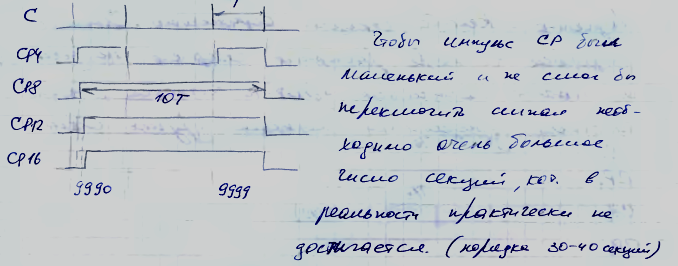 C
T
CP4
CP8
10T
CP12
CP16
9990 9999
Чтобы импульс CP был
маленький и не смог бы
переключить сигнал необ-
ходимо очень большое
число секций, кот. в
реальности практически не
достигается. (порядка 30-40 секций)